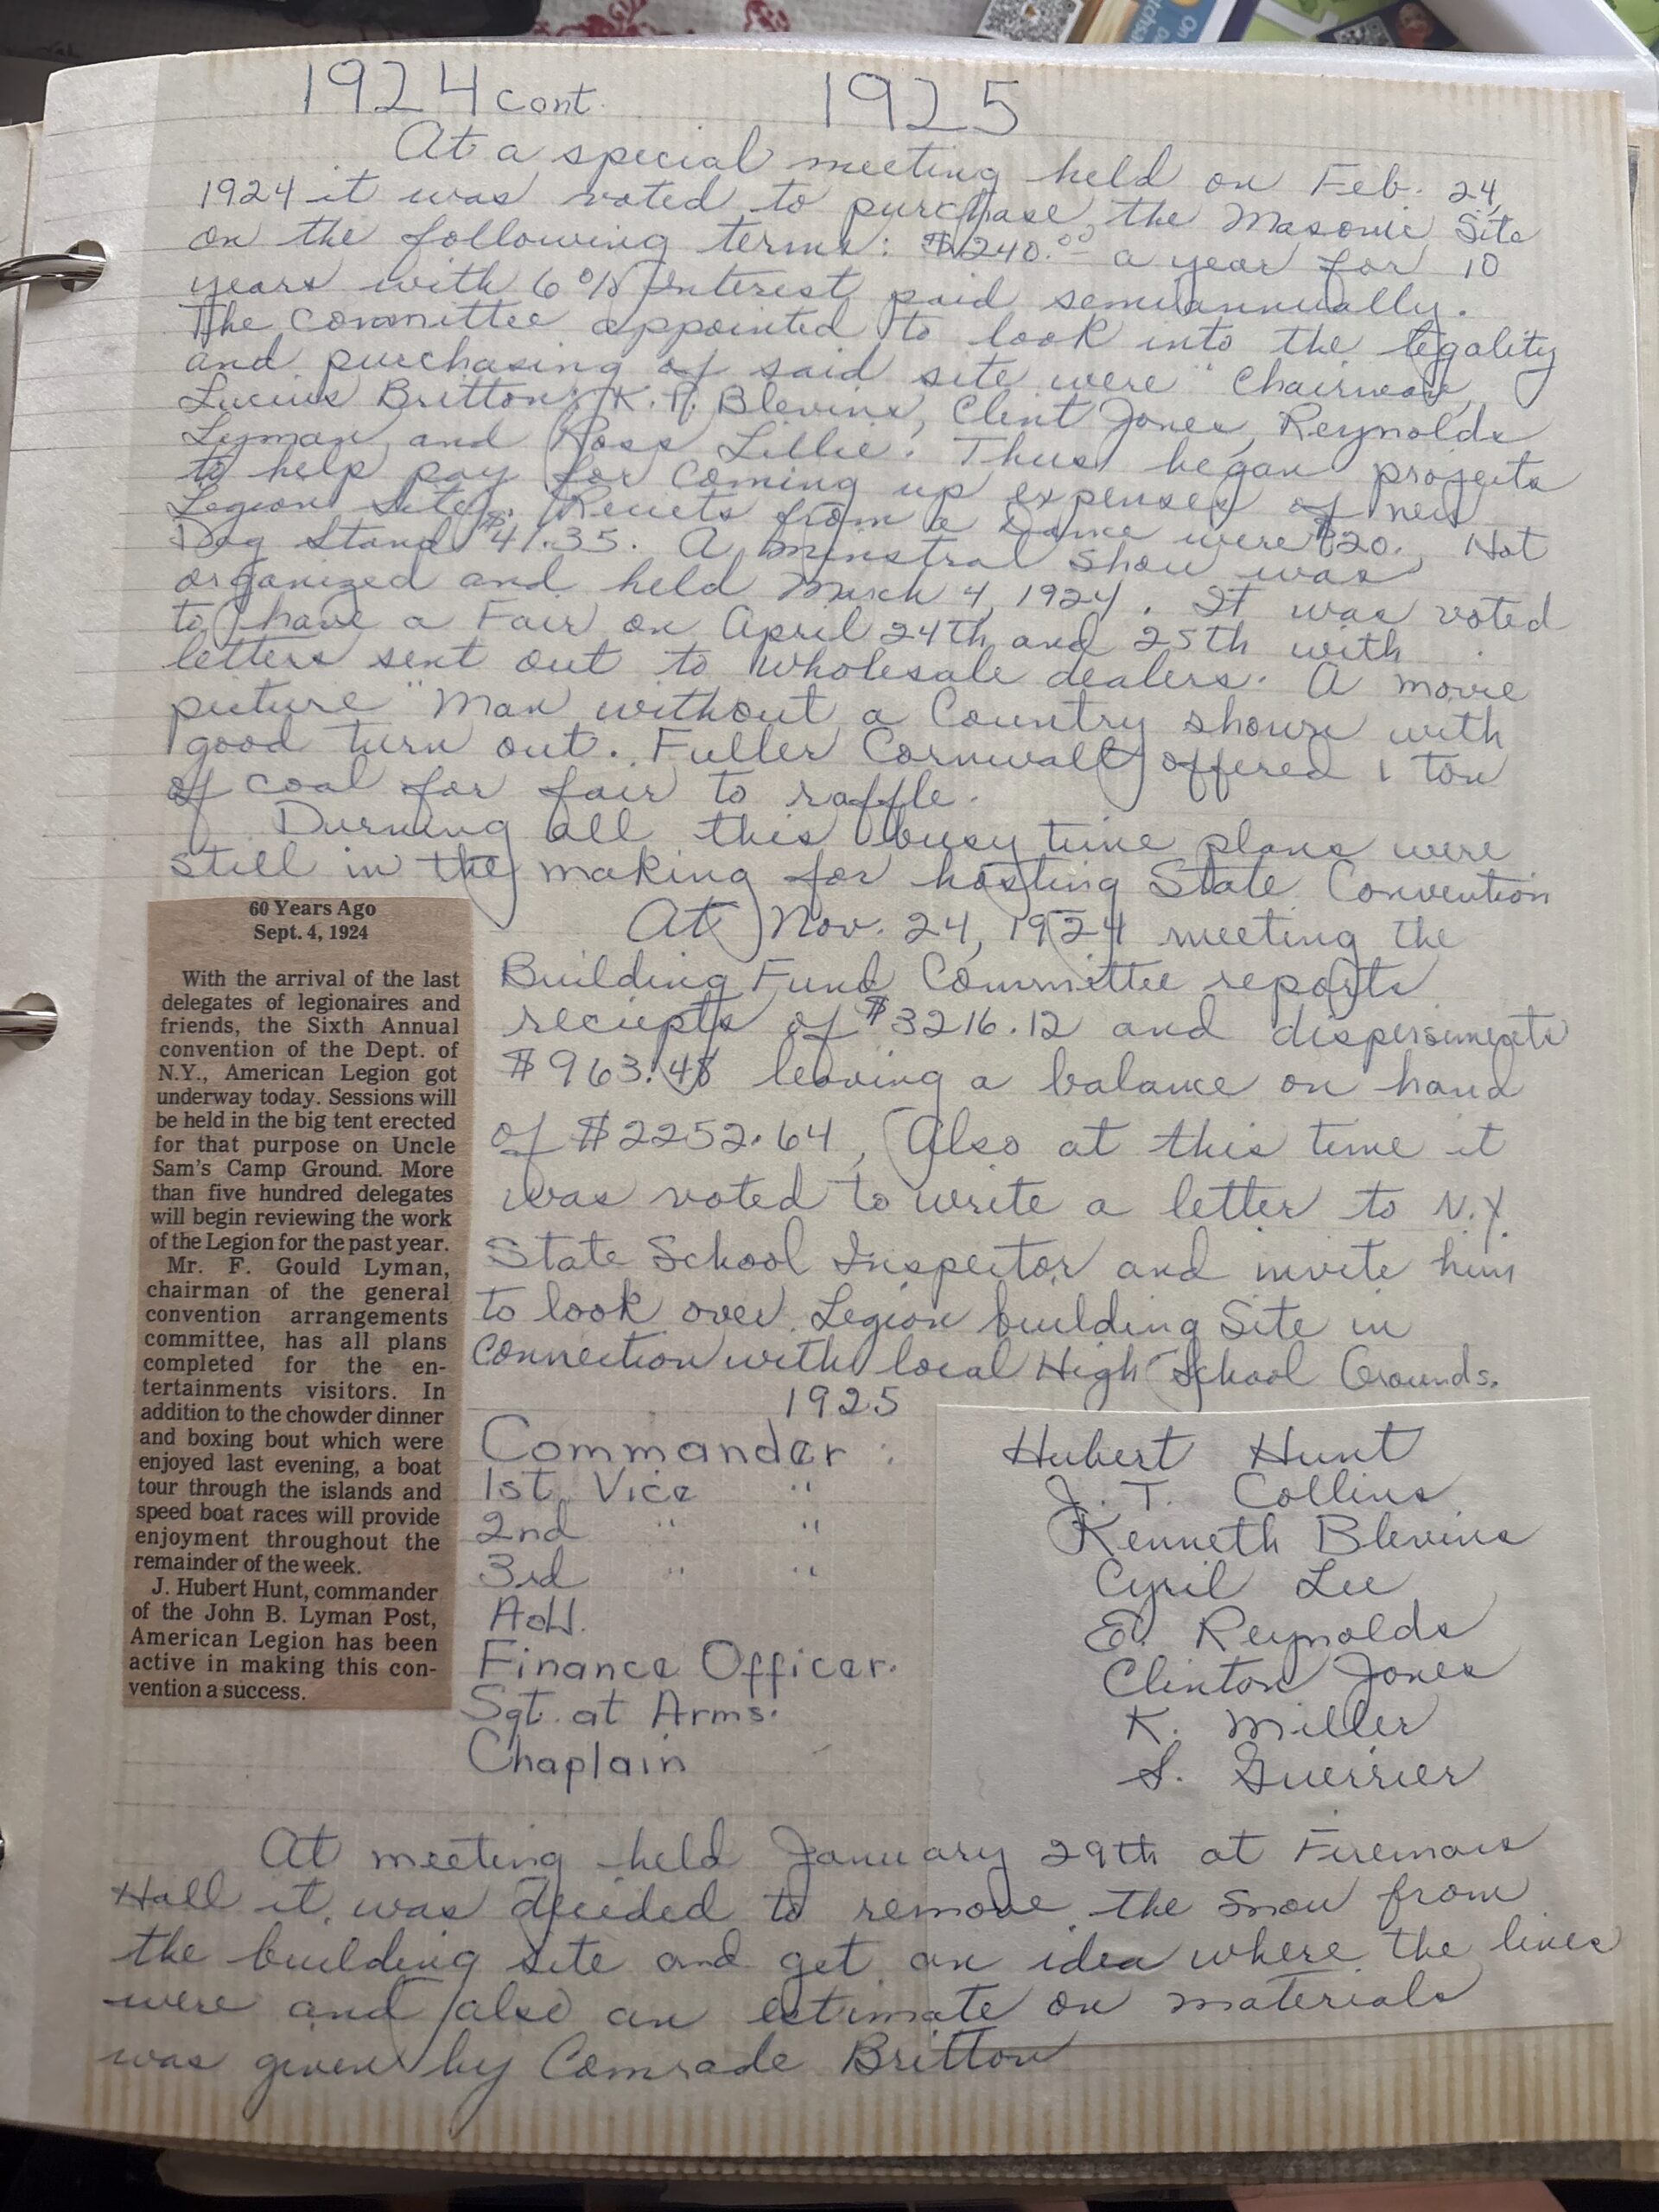 1924 cont. 1925
At a special meeting held on Feb. 24,
1924 it was voted to purchase, the Masonic Site
on the following terms: $240.00 a year for 10
years with 6% Interest paid semiannually.
The Committee appointed to look into the legality
and purchasing of said site were " Chairman,
Lucius Britton: K. P. Blevins, Clint Jones, Reynolds
Lyman, and Ross Lillie. Thus began projects
to help pay for coming up expenses of new
Legion site. Reciets from a Dance were $20., Hot
Dog Stand $41.35. A minstral show was
organized and held March 4, 1924. It was voted
to have a Fair on April 24th and 25th with
letters sent out to wholesale dealers. A movie
picture "Man without a Country shown with
good turn out. Fuller Cornwall offered 1 ton
of coal for fair to raffle.
Durning all this busy time plans were
still in the making for hosting State Convention
At Nov. 24, 1924 meeting the
Building Fund Committee reports
reciepts of $3216.12 and dispersments
$963.48 leaving a balance on hand
of $2252.64, Also at this time it
was voted to write a letter to N.Y.
State School Inspector and invite him
to look over Legion building Site in
Connection with local High School Grounds.
60 Years Ago
Sept. 4, 1924
With the arrival of the last
delegates of legionaires and
friends, the Sixth Annual
convention of the Dept. of
N.Y., American Legion got
underway today. Sessions will
be held in the big tent erected
for that purpose on Uncle
Sam's Camp Ground. More
than five hundred delegates
will begin reviewing the work
of the Legion for the past year.
Mr. F. Gould Lyman,
chairman of the general
convention arrangements
committee, has all plans
completed for the en-
tertainments visitors. In
addition to the chowder dinner
and boxing bout which were
enjoyed last evening, a boat
tour through the islands and
speed boat races will provide
enjoyment throughout the
remainder of the week.
J. Hubert Hunt, commander
of the John B. Lyman Post,
American Legion has been
active in making this con-
vention a success.
1925
Commander : Hubert Hunt
1st Vice " J. T. Collins
2nd " " Kenneth Blevins
3rd " " Cyril Lee
Adj. E. Reynolds
Finance Officer. Clinton Jones
Sgt. at Arms. K. Miller
Chaplain S. Guerrier
At meeting held January 29th at Firemans
Hall it was decided to remove the snow from
the building site and get an idea where the lines
were and also an estimate on materials
was given by Comrade Britton